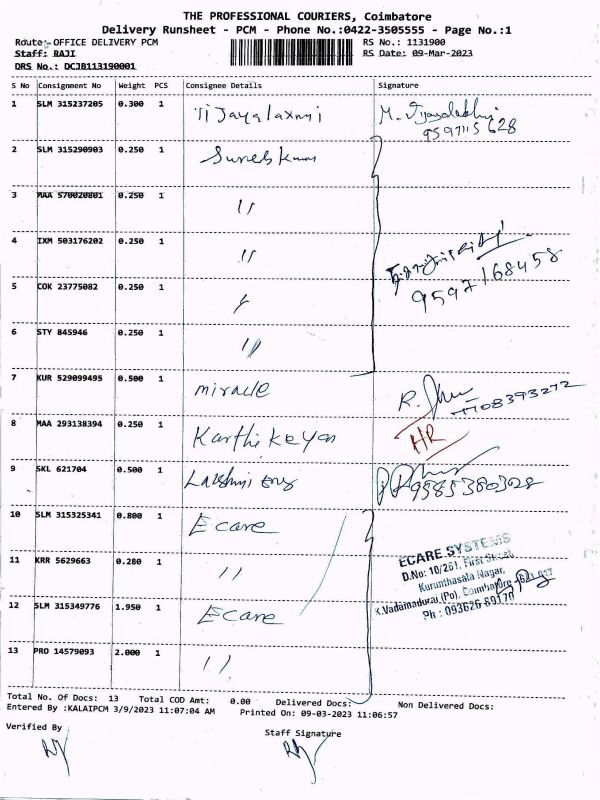 THE PROFESSIONAL COURIERS, Coimbatore
Delivery Runsheet - PCM - Phone No.:0422-3505555 - Page No.:1
Route:-OFFICE DELIVERY PCM RS No.: 1131900
Staff: RAJI RS Date: 09-Mar-2023
DRS No.: DCJB113190001
S No Consignment No Weight PCS Consignee Details Signature
1 SLM 315237205 0.300 1 Vijayalaxmi
2 SLM 315290903 0.250 1
3 MAA 570020801 0.250 1 "
4 IXM 503176202 0.250 1 "
5 COK 23775082 0.250 1 "
9597168458
6 STY 845946 0.250 1 "
7 KUR 529099495 0.500 1 miracle
8 MAA 293138394 0.250 1 Karthikeyan HR
9 SKL 621704 0.500 1 Lakshmi 9585380328
10 SLM 315325341 0.800 1 Ecare
ECARE SYSTEMS
11 KRR 5629663 0.280 1 "
D.No: 10/261, First Street,
Kurunthasala Nagar,
12 SLM 315349776 1.950 1 Ecare
K.Vadamadurai (Po), Coimbatore
Ph : 093626 89170
13 PRO 14579093 2.000 1 "
Total No. Of Docs: 13 Total COD Amt: 0.00 Delivered Docs: Non Delivered Docs:
Entered By :KALAIPCM 3/9/2023 11:07:04 AM Printed On: 09-03-2023 11:06:57
Verified By Staff Signature